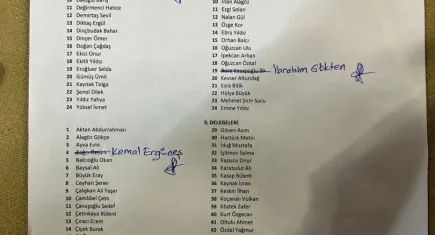 11 Değirmenci Hatice
12 Demirtaş Sevil
13 Diktaş Ergül
14 Dinçbudak Bahar
15 Dinçer Ömer
16 Doğan Çağdaş
17 Ekici Onur
18 Ekitli Yıldız
19 Eroğluer Selda
20 Gümüş Ümit
21 Kaynak Tolga
22 Şenol Dilek
23 Yıldız Yahya
24 Yüksel İsmet
10 İnan Alagöz
11 Ezgi Solan
12 Nalan Gül
13 Özge Kor
14 Ebru Yıldız
15 Orhan Balcı
16 Oğuzcan Ulu
17 İpekcan Arhan
18 Oğuzcan Özkal
19 İbrahim Gökten
20 Kevser Altundağ
21 Esra Bitik
22 Hülya Büyük
23 Mehmet Şirin Sucu
24 Emine Yıldız
İL DELEGELERİ
1 Aktan Abdurrahman
2 Alagöz Gökçe
3 Ayva Evin
4 Kemal Ergüneş
5 Balcıoğlu Okan
6 Baysal Ali
7 Büyük Eray
8 Ceyhan Şener
9 Çalışkan Ali Yaşar
10 Çamlıbel Çeto
11 Çavuşoğlu Sedef
12 Çetinkaya Bülent
13 Çıracı Ecem
14 Çiçek Burak
29 Güven Asım
30 Hastürk Metin
31 İduğ Mustafa
32 İşitmen Selma
33 Kapucu Onur
34 Karabulut Ali
35 Kasap Bülent
36 Kaynak İzan
37 Keskin İlhan
38 Koçanalı Volkan
39 Köstek Zafer
40 Kurt Özgecan
41 Oltulu Ahmet
42 Özdal Yağmur